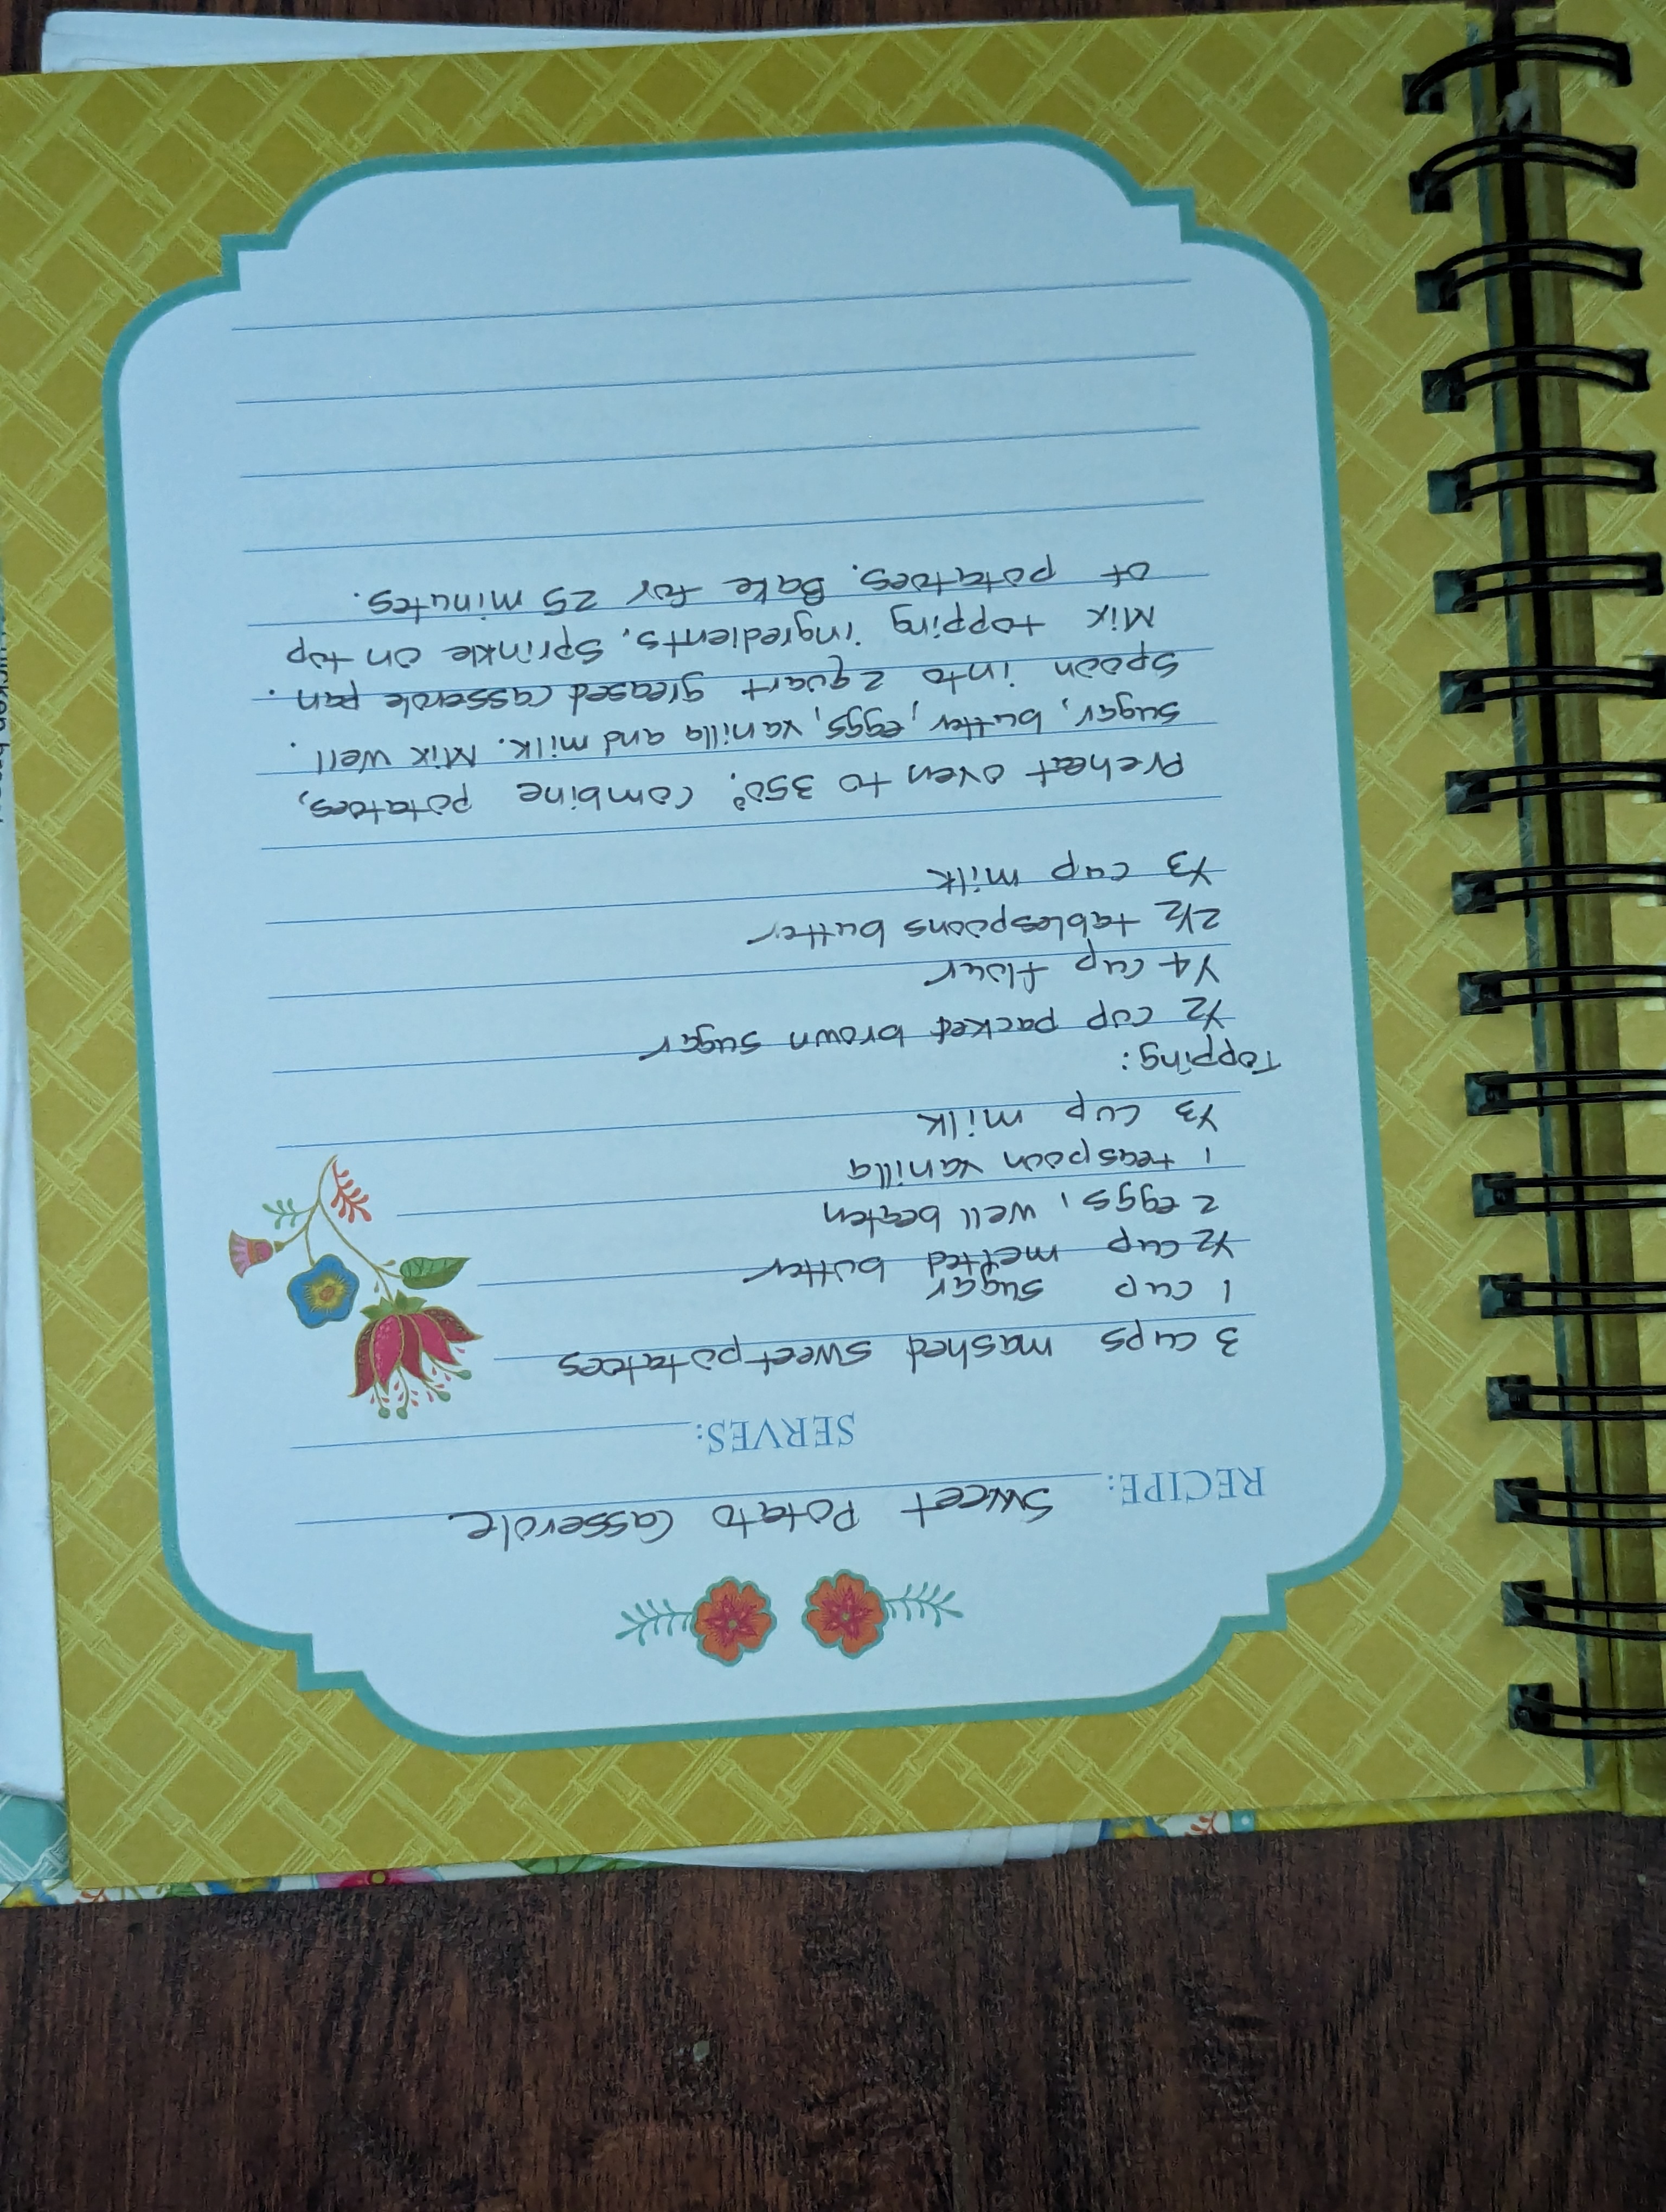 RECIPE: Sweet Potato Casserole
SERVES:
3 cups mashed sweet potatoes
1 cup sugar
1/2 cup melted butter
2 eggs, well beaten
1 teaspoon vanilla
1/3 cup milk
Topping:
1/2 cup packed brown sugar
1/4 cup flour
2 1/2 tablespoons butter
1/3 cup milk
Preheat oven to 350°. Combine potatoes,
sugar, butter, eggs, vanilla and milk. Mix well.
Spoon into 2 quart greased casserole pan.
Mix topping ingredients. Sprinkle on top
of potatoes. Bake for 25 minutes.